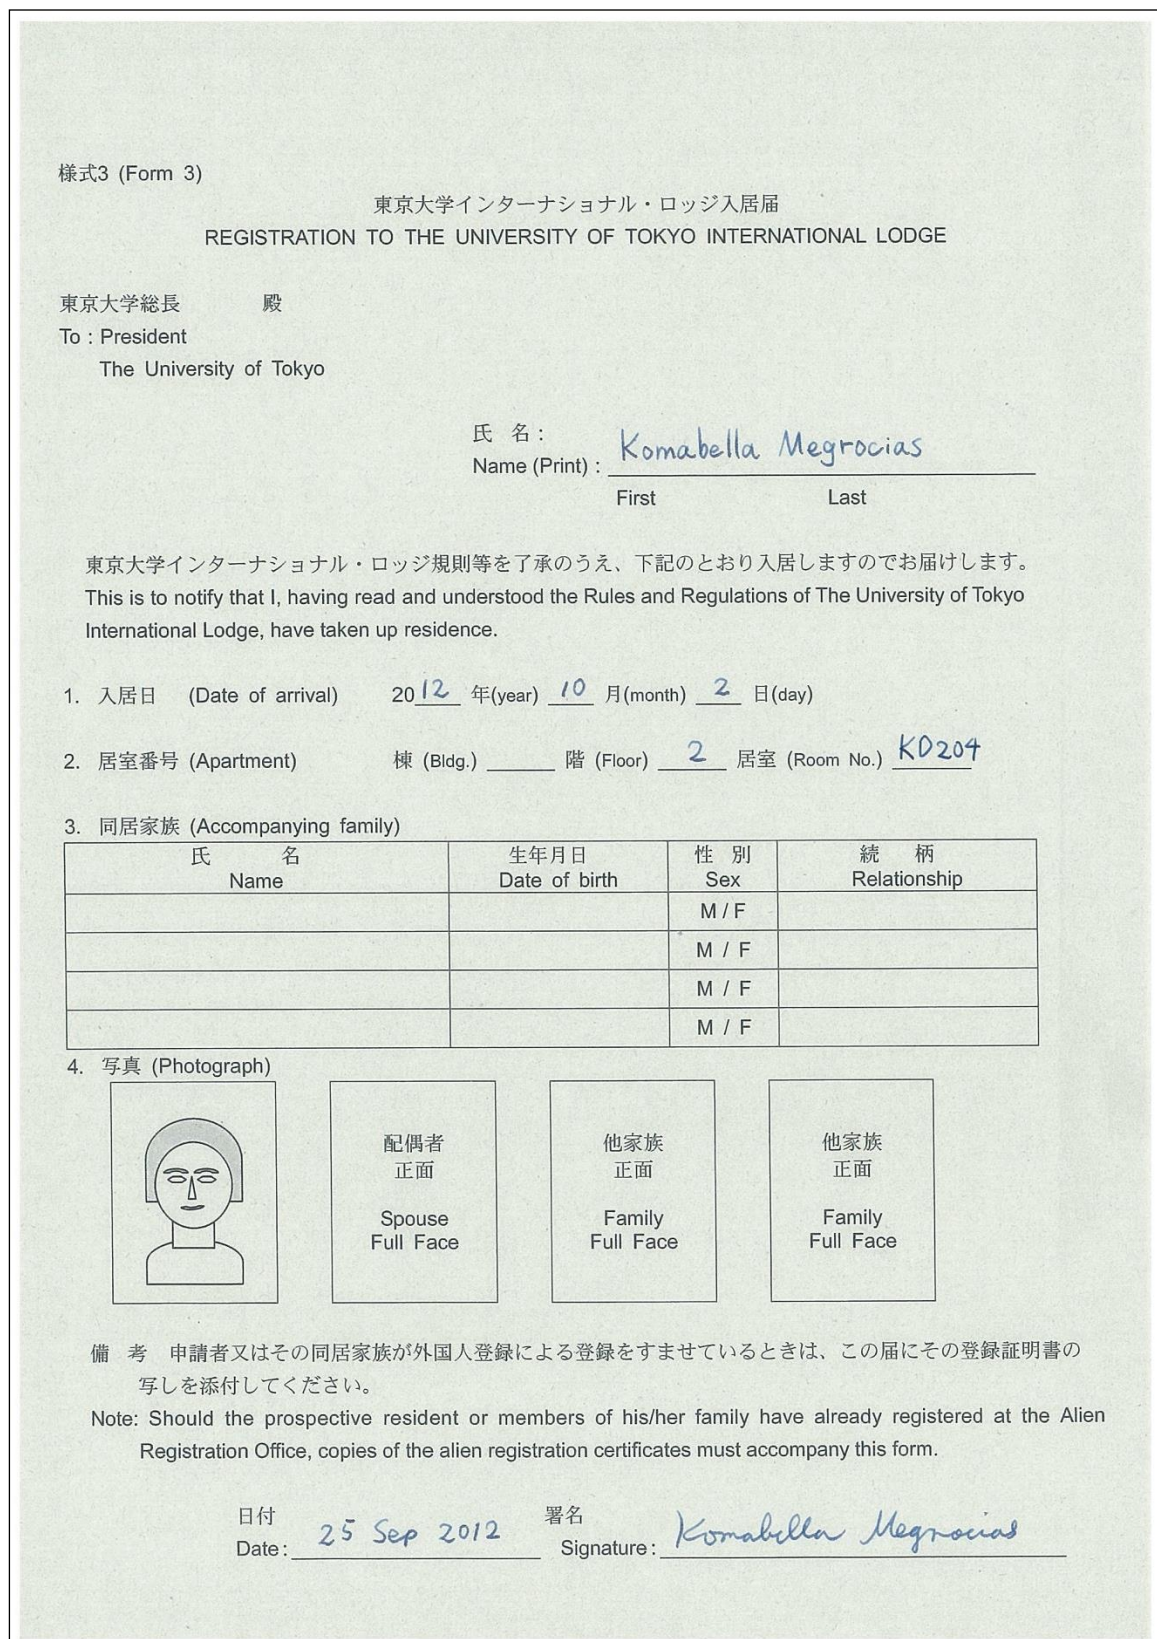 様式3 (Form 3)
東京大学インターナショナル・ロッジ入居届
REGISTRATION TO THE UNIVERSITY OF TOKYO INTERNATIONAL LODGE
東京大学総長 殿
To : President
The University of Tokyo
氏 名 :
Name (Print) : Komabella Megrocias
First Last
東京大学インターナショナル・ロッジ規則等を了承のうえ、下記のとおり入居しますのでお届けします。
This is to notify that I, having read and understood the Rules and Regulations of The University of Tokyo
International Lodge, have taken up residence.
1. 入居日 (Date of arrival) 2012 年(year) 10 月(month) 2 日(day)
2. 居室番号 (Apartment) 棟 (Bldg.) 階 (Floor) 2 居室 (Room No.) KD204
3. 同居家族 (Accompanying family)
氏 名 生年月日 性 別 続 柄
Name Date of birth Sex Relationship
M / F
M / F
M / F
M / F
4. 写真 (Photograph)
配偶者 他家族 他家族
正面 正面 正面
Spouse Family Family
Full Face Full Face Full Face
備 考 申請者又はその同居家族が外国人登録による登録をすませているときは、この届にその登録証明書の
写しを添付してください。
Note: Should the prospective resident or members of his/her family have already registered at the Alien
Registration Office, copies of the alien registration certificates must accompany this form.
日付 署名
Date : 25 Sep 2012 Signature : Komabella Megrocias